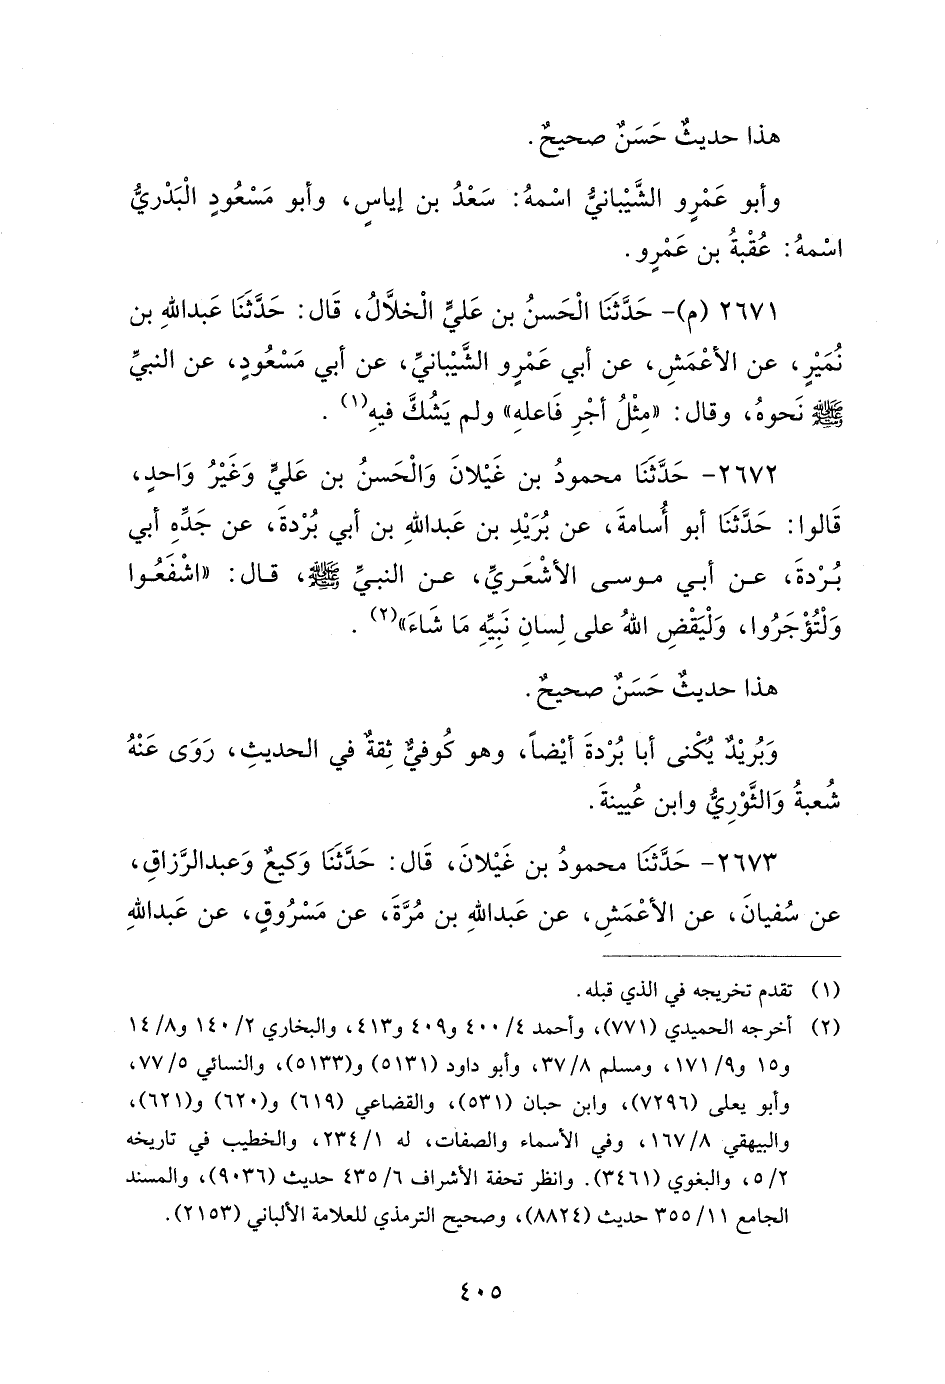 هذا حديثٌ حَسَنٌ صحيحٌ.
وأبو عَمْرٍو الشَّيْبانيُّ اسْمهُ: سَعْدُ بن إياسٍ، وأبو مَسْعُودٍ الْبَدْريُّ
اسْمهُ: عُقْبةُ بن عَمْرٍو.
٢٦٧١ (م)- حَدَّثَنَا الْحَسنُ بن عَليٍّ الْخلاَّلُ، قَال: حَدَّثَنَا عَبداللهِ بن
نُمَيْرٍ، عن الأعْمَشِ، عن أبي عَمْرٍو الشَّيْبانيِّ، عن أبي مَسْعُودٍ، عن النبيِّ
ﷺ نَحوهُ، وقال: «مِثْلُ أجْرِ فَاعلهِ» ولم يَشُكَّ فيهِ(١) .
٢٦٧٢- حَدَّثَنَا محمودُ بن غَيْلانَ وَالْحَسنُ بن عَليٍّ وَغَيْرُ وَاحدٍ،
قَالوا: حَدَّثَنَا أبو أُسامةَ، عن بُرَيْدِ بن عَبداللهِ بن أبي بُرْدةَ، عن جَدِّهِ أبي
بُرْدةَ، عن أبي موسى الأشْعَريِّ، عن النبيِّ ﷺ، قال: «اشْفَعُوا
وَلْتُؤْجَرُوا، وَلْيَقْضِ اللهُ على لِسانِ نَبِيِّهِ مَا شَاءَ»(٢) .
هذا حديثٌ حَسَنٌ صحيحٌ.
وَبُرَيْدٌ يُكْنى أبا بُرْدةَ أيْضاً، وهو كُوفيٌّ ثِقةٌ في الحديثِ، رَوَى عَنْهُ
شُعبةُ وَالثَّوْرِيُّ وابن عُيينةَ.
٢٦٧٣- حَدَّثَنَا محمودُ بن غَيْلانَ، قَال: حَدَّثَنَا وَكيعٌ وَعبدالرَّزاقِ،
عن سُفيانَ، عن الأعْمَشِ، عن عَبداللهِ بن مُرَّةَ، عن مَسْرُوقٍ، عن عَبداللهِ
(١) تقدم تخريجه في الذي قبله.
(٢) أخرجه الحميدي (٧٧١)، وأحمد ٤/ ٤٠٠ و٤٠٩ و٤١٣، والبخاري ٢/ ١٤٠ و٨/ ١٤
و١٥ و٩/ ١٧١، ومسلم ٨/ ٣٧، وأبو داود (٥١٣١) و(٥١٣٣)، والنسائي ٥/ ٧٧،
وأبو يعلى (٧٢٩٦)، وابن حبان (٥٣١)، والقضاعي (٦١٩) و(٦٢٠) و(٦٢١)،
والبيهقي ٨/ ١٦٧، وفي الأسماء والصفات، له ١/ ٢٣٤، والخطيب في تاريخه
٢/ ٥، والبغوي (٣٤٦١). وانظر تحفة الأشراف ٦/ ٤٣٥ حديث (٩٠٣٦)، والمسند
الجامع ١١/ ٣٥٥ حديث (٨٨٢٤)، وصحيح الترمذي للعلامة الألباني (٢١٥٣).
٤٠٥